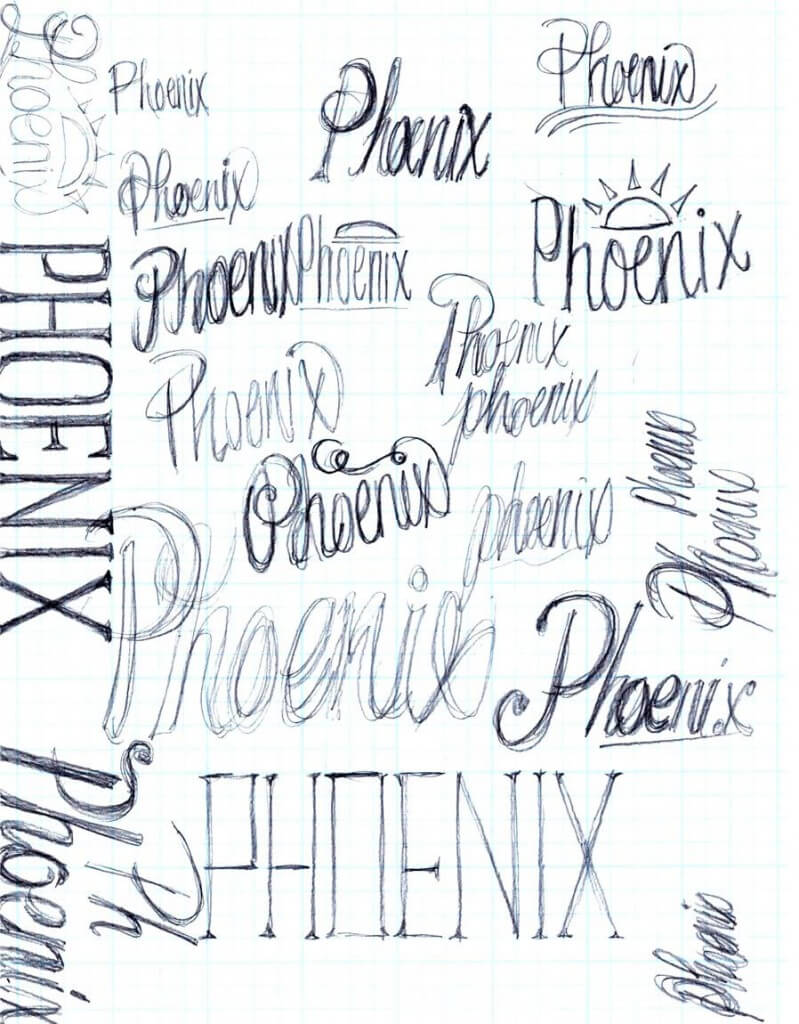 Phoenix
Phoenix
Phoenix
Phoenix
Phoenix
Phoenix
Phoenix
Phoenix
Phoenix
Phoenix
phoenix
PHOENIX
Phoenix
phoenix
Phoenix
Ph
Phoenix
Phoenix
Phoenix
Phoenix
Ph
Ph
PHOENIX
Phoenix